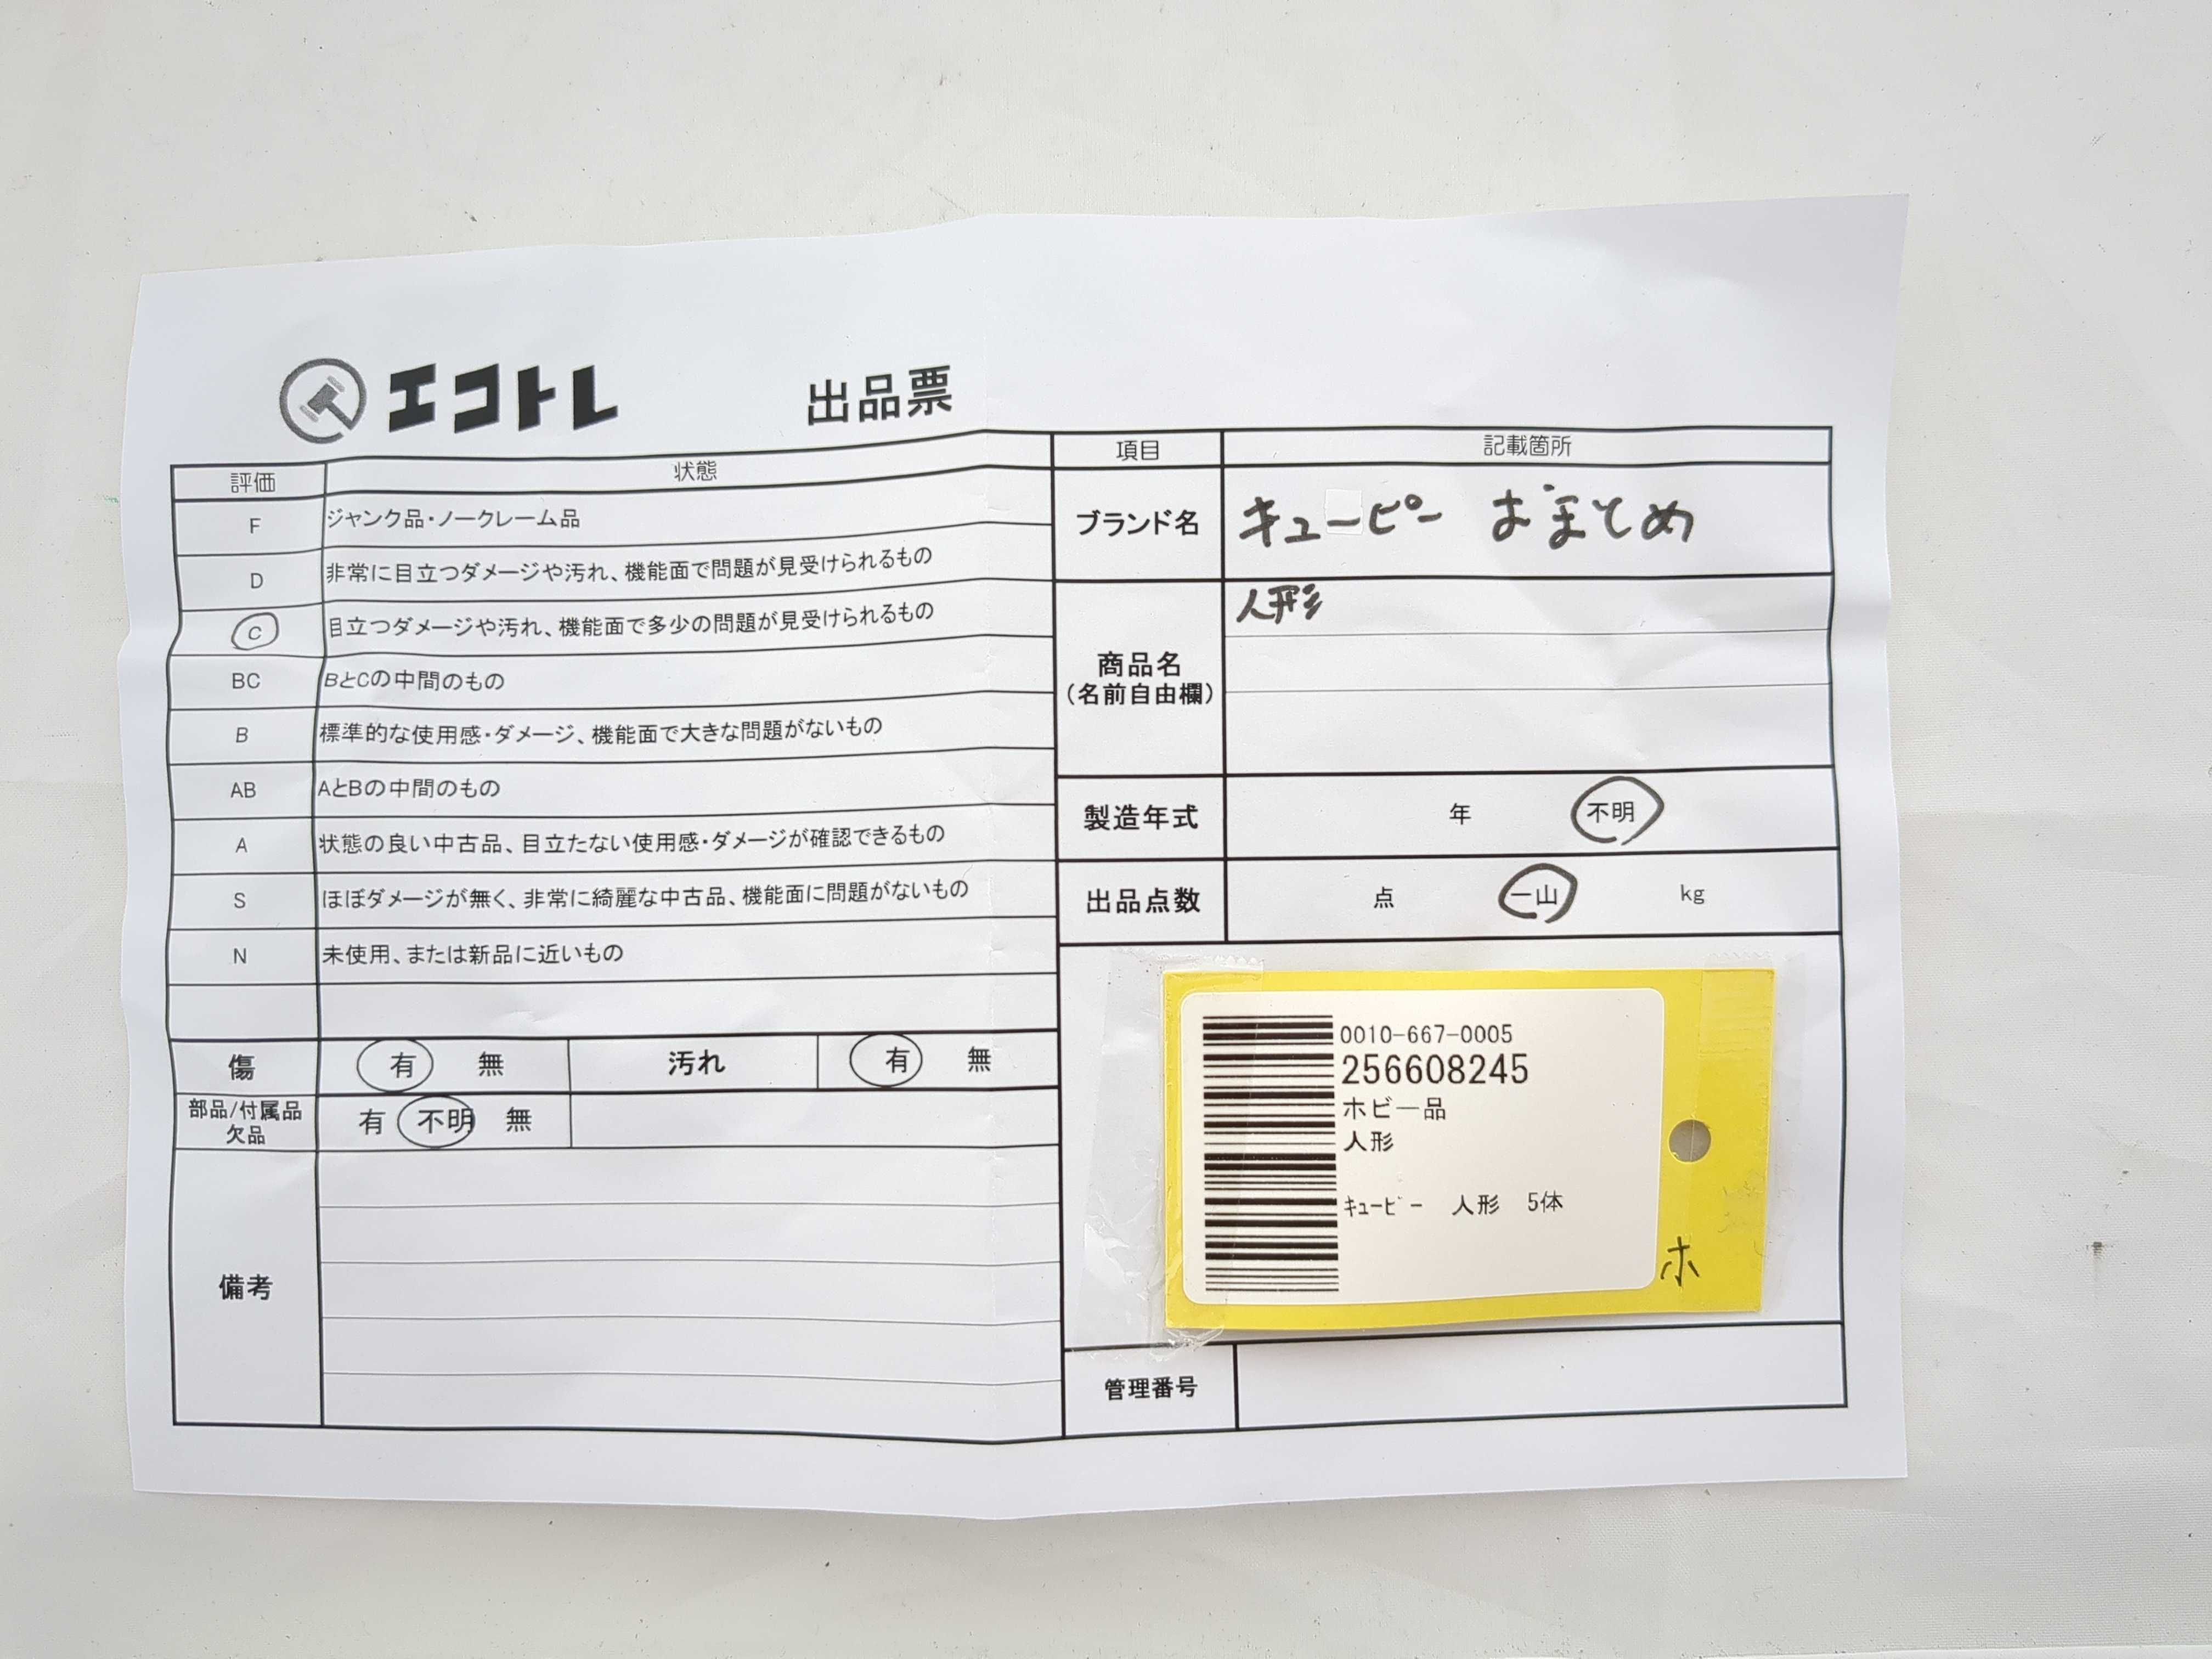 エコトレ 出品票
評価 状態
F ジャンク品・ノークレーム品
D 非常に目立つダメージや汚れ、機能面で問題が見受けられるもの
C 目立つダメージや汚れ、機能面で多少の問題が見受けられるもの
BC BとCの中間のもの
B 標準的な使用感・ダメージ、機能面で大きな問題がないもの
AB AとBの中間のもの
A 状態の良い中古品、目立たない使用感・ダメージが確認できるもの
S ほぼダメージが無く、非常に綺麗な中古品、機能面に問題がないもの
N 未使用、または新品に近いもの
傷 有 無 汚れ 有 無
部品/付属品
欠品
有 不明 無
備考
項目 記載箇所
ブランド名 キューピー おまとめ
商品名
(名前自由欄)
人形
製造年式 年 不明
出品点数 点 一山 kg
0010-667-0005
256608245
ホビー品
人形
ｷｭｰﾋﾟｰ 人形 5体
ホ
管理番号